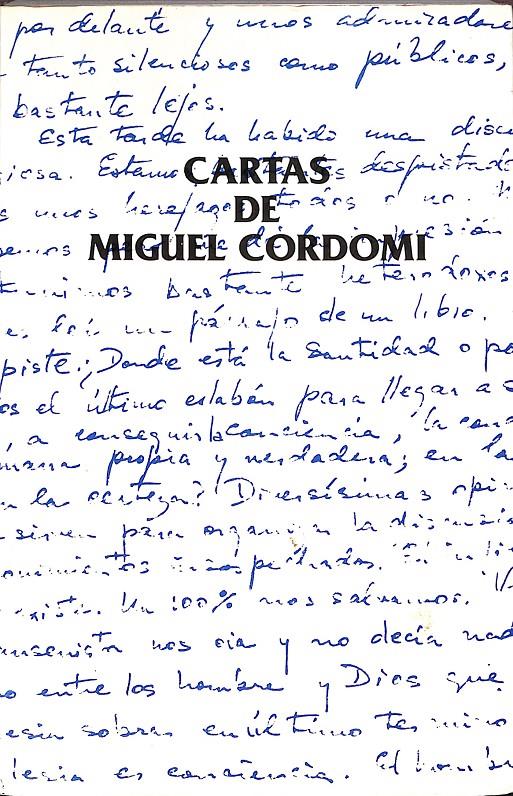 por delante y unos admiradore
tanto silenciosos como públicos,
bastante lejos.
Esta tarde ha habido una discu
giosa. Estamo despistado
CARTAS
s unos todos o no.
DE
MIGUEL CORDOMI
bastante heterodoxos
un párrafo de un libro.
piste. ¿Donde está la santidad o po
os el último eslabón para llegar a s
, a conseguir la conciencia, la conc
mana propia y verdadera; en la
n la certeza? Diversísimas opi
sirven para organizar la discusió
Un 100% nos salvamos.
ansenista nos oia y no decía nad
o entre los hombre y Dios que
esia sobra en último termino
lesia es conciencia. El hombr